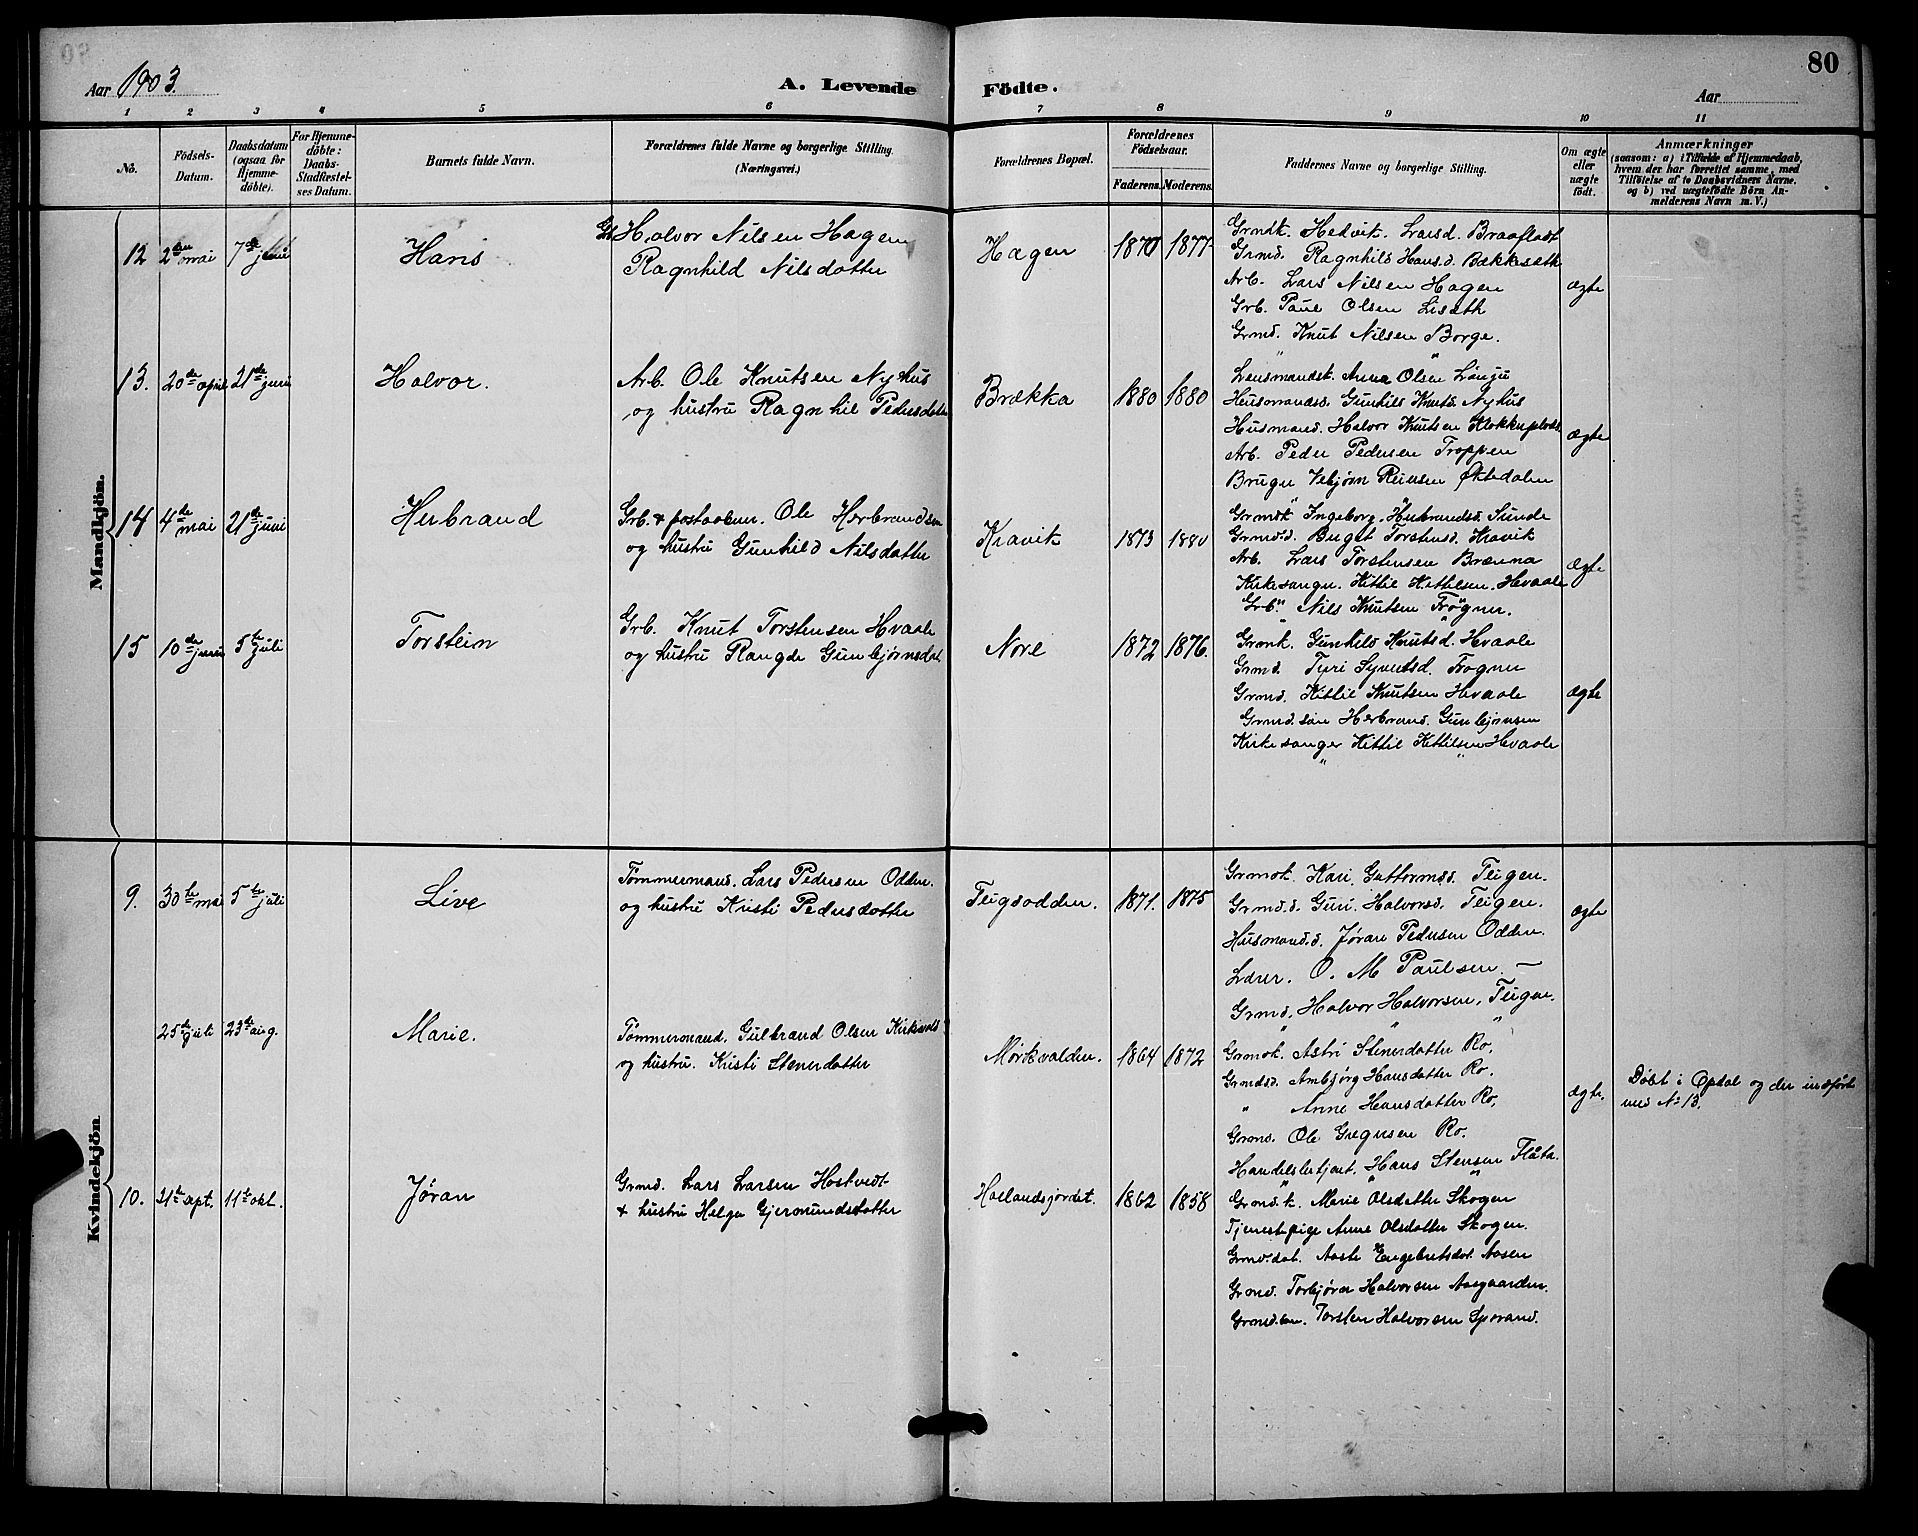 80
Aar 1903.
A. Levende Födte.
Aar
1 2 3 4 5 6 7 8 9 10 11
No.
Födsels-Datum.
Daabsdatum (ogsaa for Hjemme-döbte).
For Hjemme-döbte: Daabs-Stadfæstel-ses Datum.
Barnets fulde Navn.
Forældrenes fulde Navne og borgerlige Stilling.
(Næringsvei.)
Forældrenes Bopæl.
Forældrenes Födselsaar.
Faderens. Moderens.
Faddernes Navne og borgerlige Stilling.
Om ægte eller uægte födt.
Anmærkninger
(saasom: a) i Tilfælde af Hjemmedaab, hvem der har forrettet samme, med Tilföielse af to Daabsvidners Navne, og b) ved uægtefödte Börn An-melderens Navn m. V.)
Mandkjön.
12 2den mai 7de juni Hans
Halvor Nilsen Hagen
Ragnhild Nilsdatter
Hagen 1870 1877
Grmdk. Hedvik. Larsd. Braafladt
Grmd. Ragnhild Hansd. Bækkesæth
Arb. Lars Nilsen Hagen
Grb. Paul Olsen Lisæth
Grmd. Knut Nilsen Borge.
ægte
13. 20de april 21de juni Halvor.
Arb. Ole Knutsen Nyhus
og hustru Ragnhil Pedersdatter
Brækka 1880 1880
Lensmandsk. Anna Olsen
Husmandsd. Gunhild Knuts. Nyhus
Husmand. Halvor Knutsen
Arb. Peder Pedersen Troppen
Vebjørn Reiersen Øktedalen
ægte
14 4de mai 21de juni Herbrand
Grb. & postaabner. Ole Herbrandsen
og hustru Gunhild Nilsdatter
Kravik 1873 1880
Grmdk Ingeborg. Herbrandsd. Sunde
Grmd.d. Birget Torstensd. Kravik
Arb. Lars Torstensen Brænna
Kirkesanger. Kittil Kittilsen. Hvaale
Grb. Nils Knutsen Frøgner.
ægte
15 10de juni 5te juli Torstein
Grb. Knut Torstensen Hvaale
og hustru Rangde Gunbjørnsdat
Nore 1872 1876.
Grmk. Gunhild Knutsd. Hvaale
Grmd. Turi Syvertsd. Frogner
Grmd. Kittil Knutsen Hvaale
Grmd. søn Herbrand. Gunbjørnsen
Kirkesanger Kittil Kittilsen Hvaale
ægte
Kvindekjön
9. 30te mai 5te juli Live
Tømmermand. Lars Pedersen Odden.
og hustru Kristi Pedersdatter
Teigsodden. 1871. 1875
Grmdk. Kari. Guttormsd. Teigen.
Grmd.d. Guri. Halvorsd. Teigen.
Husmandsd. Jøran Pedersen Odden.
Lærer. O. M Paulsen. —
Grmd. Halvor Halvorsen, Teigen.
ægte
25de juli 23de aug. Marie.
Tømmermand. Gulbrand Olsen Kirkevold
og hustru. Kristi Stenersdatter
Mørkvolden. 1864 1872
Grmdk. Astri Stenersdatter Ro.
Grmdsd. Ambjørg Hansdatter Ro.
" Anne Hansdatter Ro.
Grmd. Ole Gregersen Ro.
Handelsbetjent. Hans Stensen Flåta.
ægte.
Døbt i Opdal og der indført
med No 13.
10. 21de spt. 11te okt. Jøran
Grmd. Lars Larsen Hostvedt
& hustru Helga Gjermundsdatter
Hallandsjordet. 1862 1858
Grmd.k. Marie Olsdatter Skogen
Tjenestepige Anne Olsdatter Skogen.
Grmd.dat. Aaste Engebretsdat. Aasen
Grmd. Torbjørn Halvorsen Aasgaarden.
Grmd.søn. Torsten Halvorsen